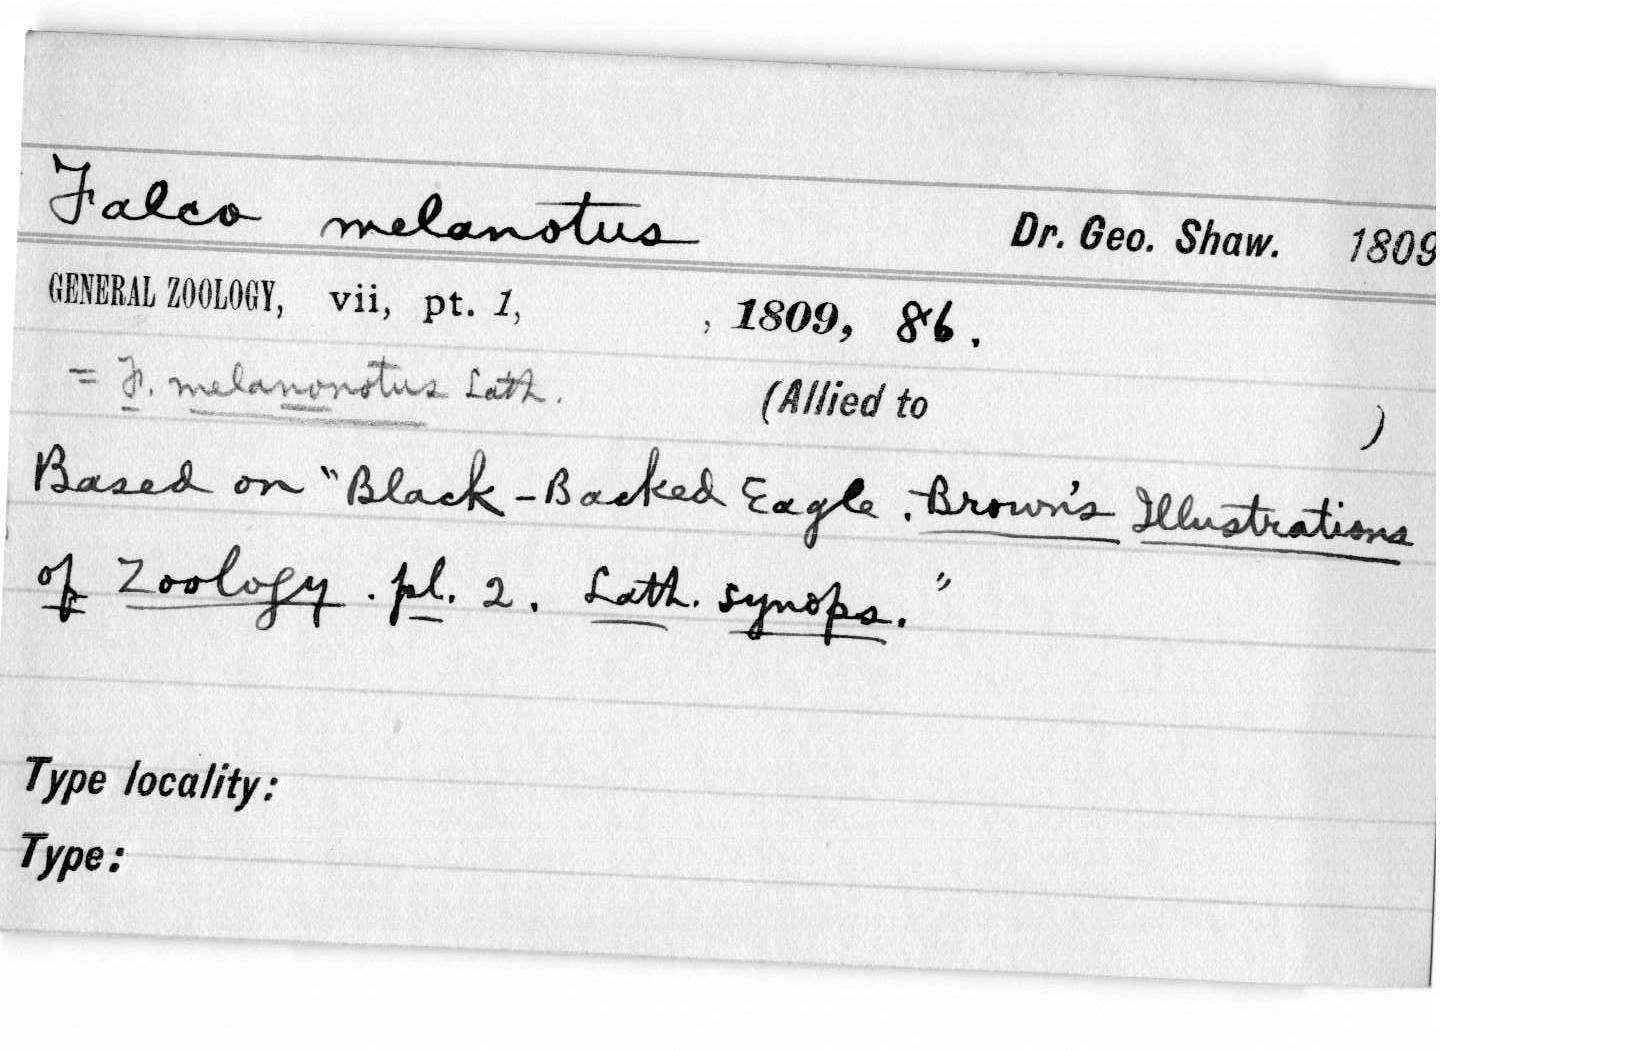 Falco melanotus Dr. Geo. Shaw. 1809
GENERAL ZOOLOGY, vii, pt. 1, , 1809, 86.
= F. melanonotus Lath. (Allied to )
Based on "Black-Backed Eagle. Brown's Illustrations
of Zoology. pl. 2. Lath. synops."
Type locality:
Type: